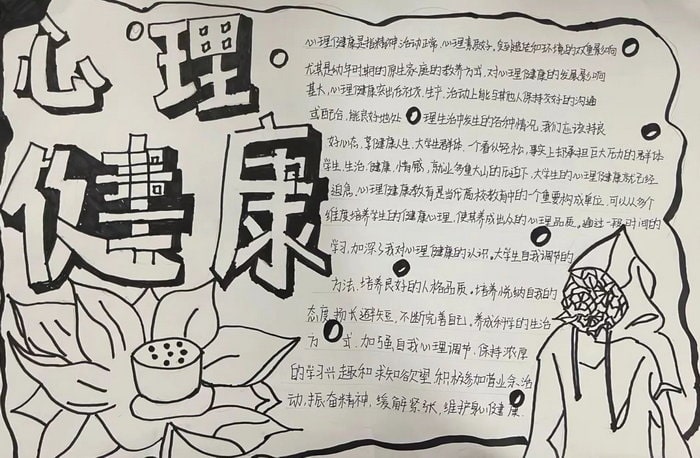 心理
健康
心理健康是指精神活动正常,心理素质好,受到遗传和环境的双重影响
尤其是幼年时期的原生家庭的教养方式,对心理健康的发展影响
甚大,心理健康突出在社交,生产,治动上能与其他人保持较好的沟通
或配合,能良好地处理生活中发生的各种情况,我们应该持良
好心态,掌健康人生,大学生群体,一个看似轻松,事实上却承担巨大压力的群体
学生,生治,健康,情感,就业多重大山的压迫下,大学生的心理健康就已经
迫急,心理健康教育是当代高校教育中的一个重要构成单位,可以从多个
维度培养学生的健康心理,使其养成出人的心理品质。通过一段时间的
学习,加深了我对心理健康的认识。大学生自我调节的
方法,培养良好的人格品质。培养悦纳自我的
态度,扬长避短,不断完善自己。养成科学的生治
方式,加强自我心理调节,保持浓厚
的学习兴趣和求知欲望,积极参加业余治
动,振奋精神,缓解紧张,维护身心健康